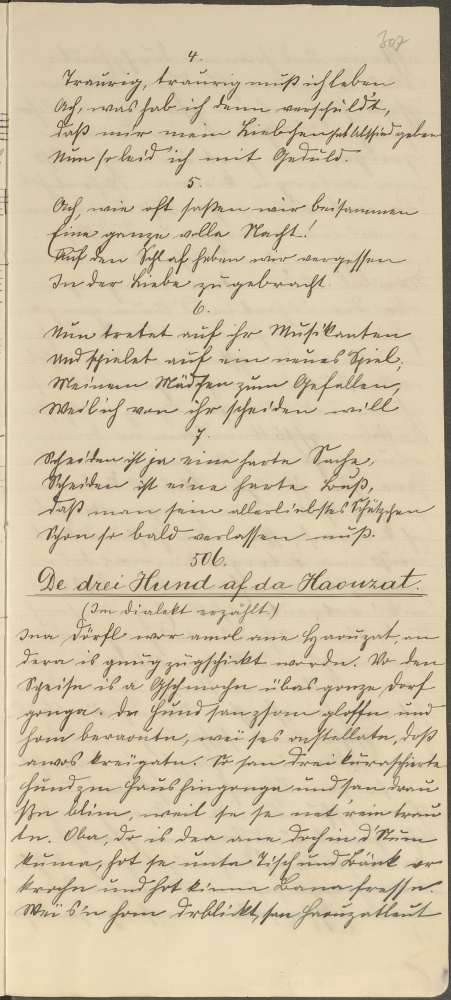 307
4.
Traurig, traurig muß ich leben
Ach, was hab ich denn verschuld't,
Daß mir mein Liebchen hat Abschied geben
Nun so leid' ich mit Geduld.
5.
Ach, wie oft saßen wir beisammen
Eine ganze volle Nacht!
Auf den Schlaf haben wir vergessen
In der Liebe zugebracht.
6.
Nun tretet auf ihr Musikanten
Und spielet auf ein neues Spiel,
Meinem Mädchen zum Gefallen,
Weil ich von ihr scheiden will
7.
Scheiden ist ja eine harte Sache,
Scheiden ist eine harte Buß,
Daß man sein allerliebstes Schätzchen
Schon so bald verlassen muß.
506.
De drei Hund af da Haouzat.
(Im Dialekt erzählt.)
Ina Dörfl wor amol ane Haouzat, an
dera is gnug zugschickt wordn. Vo den
Speisn is a Gschmochn übas gonze Dorf
gonga. De Hund san zsom gloffn und
hom beraoutn, wei ses onstelladn, doß
awos kreigatn. So san drei kuraschierte
Hund zm Haus hingonga und san drau
ßn blim, weil se se net rein trau
tn. Oba, do is dea ane doch in d'Stum
kuma, hot se unta Tisch und Bänk ver
krochn und hot kinna Bana fressn.
Wei s'n hom dablickt, san Haouzatleut